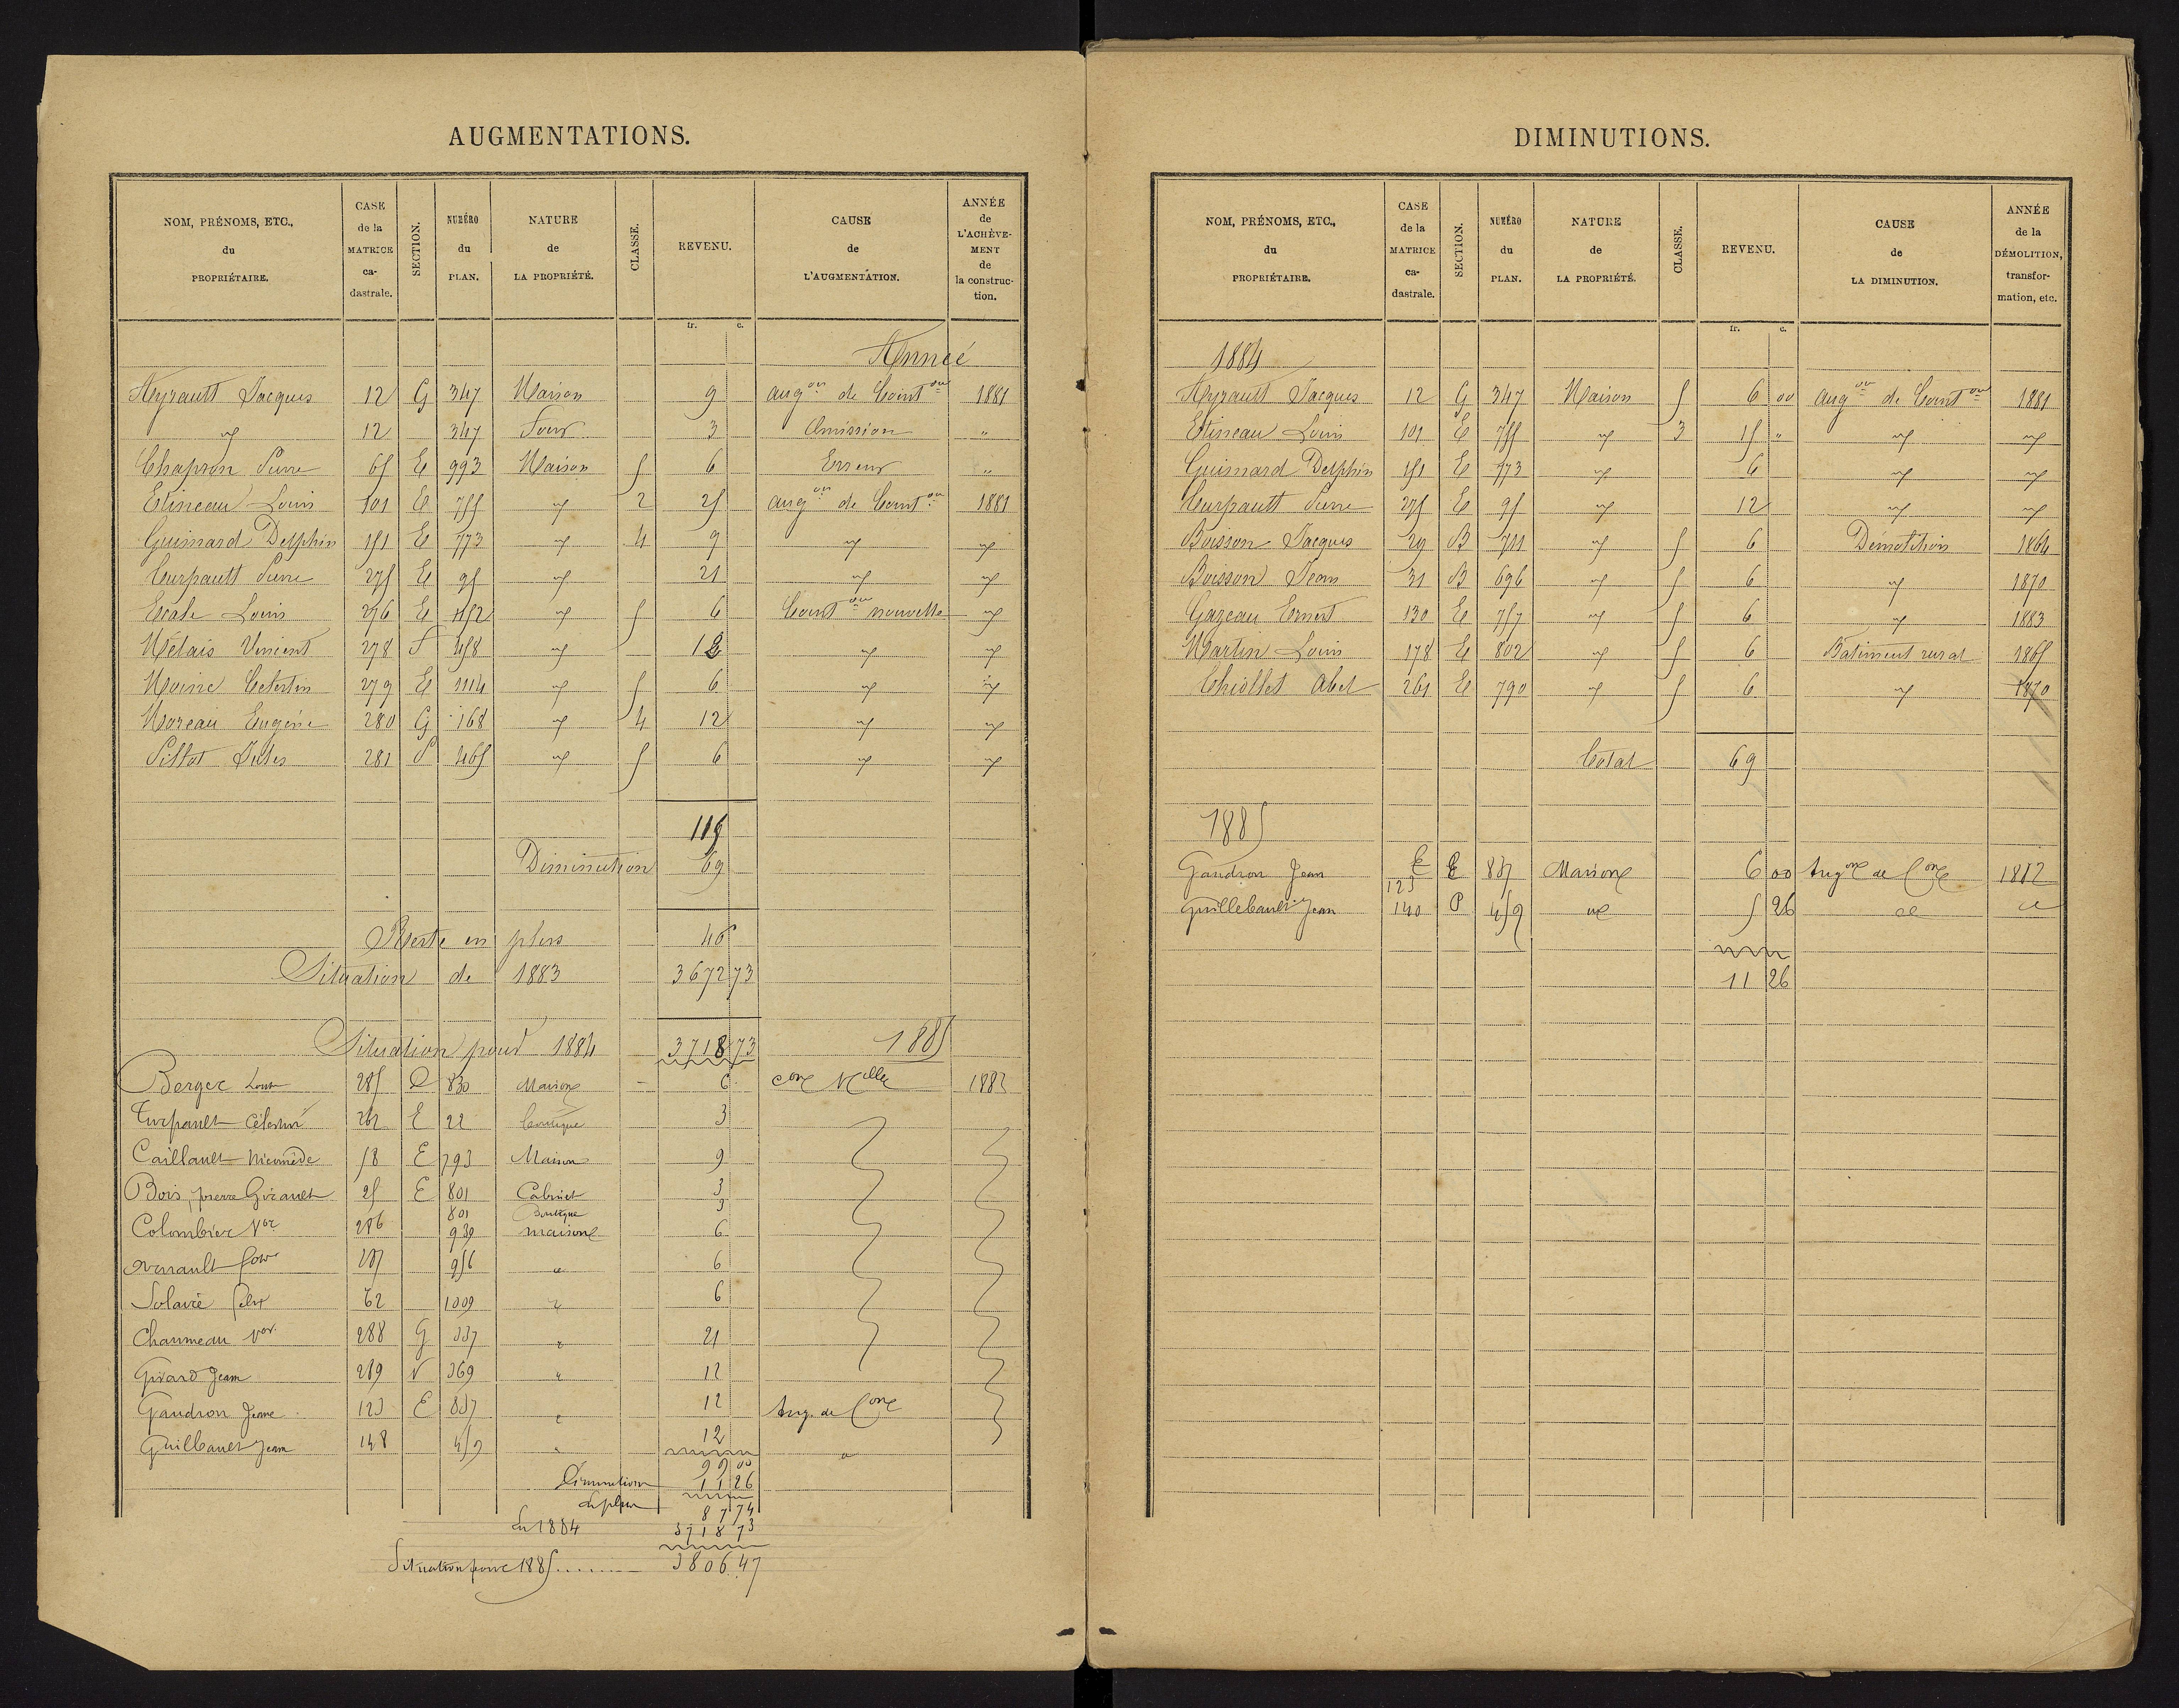 AUGMENTATIONS.
NOM, PRÉNOMS, ETC., du PROPRIÉTAIRE. CASE de la MATRICE ca- dastrale. SECTION. NUMÉRO du PLAN. NATURE de LA PROPRIÉTÉ. CLASSE. REVENU. CAUSE de L'AUGMENTATION. ANNÉE de L'ACHÈVE- MENT de la construc- tion.
fr. c.
Année
Heyrault Jacques 12 G 347 Maison 9 augon de Const on 1881
id 12 347 Four 3 Omission "
Chapron Pierre 65 E 993 Maison 5 6 Erreur "
Etineau Louis 101 E 755 id 2 25 augon de Const on 1881
Guimard Delphin 151 E 773 id 4 9 id id
Turpault Pierre 275 E 95 id 21 id id
Louis 276 E id 5 6 Const on nouvelle id
Métais Vincent 278 458 id 12 id id
Moine Celestin 279 E 1114 id 5 6 id id
Moreau Eugène 280 G 168 id 4 12 id id
Pillot Jules 281 465 id 5 6 id id
115
Diminution 69
Reste en plus 46
Situation de 1883 3672 73
Situation pour 1884 3718 73 1885
Berger Louis 285 830 Maison 6 con Nelle 1882
Turpault Célestin 262 E 22 boutique 3
Caillault Nicomède 58 E 793 Maison 9
Bois, pierre Girault 25 E 801 Cabinet 3
801 Boutique 3
Colombier Vor 286 939 maison 6
287 956 " 6
62 1009 " 6
Chaumeau Vor 288 G 337 " 21
Girard Jean 289 369 " 12
Gaudron Jean 123 E 837 " 12 Aug. de Con
Guilbault Jean 148 459 " 12 "
99 00
Diminution 11 26
de plus
87 74
En 1884 3718 73
Situation pour 1885 ........ 3806.47
DIMINUTIONS.
NOM, PRÉNOMS, ETC., du PROPRIÉTAIRE. CASE de la MATRICE ca- dastrale. SECTION. NUMÉRO du PLAN. NATURE de LA PROPRIÉTÉ. CLASSE. REVENU. CAUSE de LA DIMINUTION. ANNÉE de la DÉMOLITION, transfor- mation, etc.
fr. c.
1884
Heyrault Jacques 12 G 347 Maison 5 6 00 augon de Const on 1881
Etineau Louis 101 E 755 id 3 15 " id id
Guimard Delphin 151 E 773 id 6 id id
Turpault Pierre 275 E 95 id 12 id id
Boisson Jacques 29 B 711 id 5 6 Démolition 1864
Boisson Jean 31 B 696 id 5 6 id 1870
Gazeau Ernest 130 E 757 id 5 6 id 1883
Martin Louis 178 E 802 id 5 6 Batiment rural 1865
Chiollet Abel 261 E 790 id 5 6 id 1870
Total 69
1885
Gaudron Jean 123 E 837 Maison 6 00 Augon de Con 1882
Guillebault Jean 140 P 459 id 5 26 id id
11 26